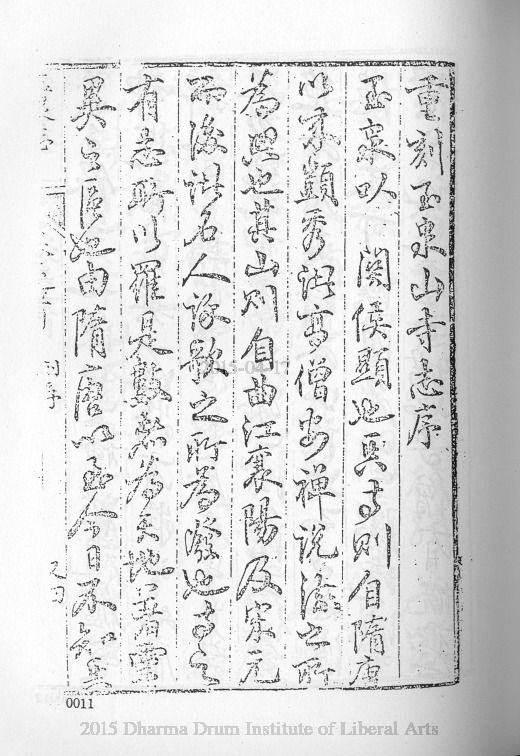 重刻玉泉山寺志序
玉泉以 関侯顯也其寺則自隋唐
以來顗秀諸高僧安禅説法之所
為興也其山則自曲江襄陽及宋元
而後諸名人詠歌之所為發也寺之
有志所以羅是數者為天地著靈
異之區也由隋唐以至今日不知其
0011
2015 Dharma Drum Institute of Liberal Arts